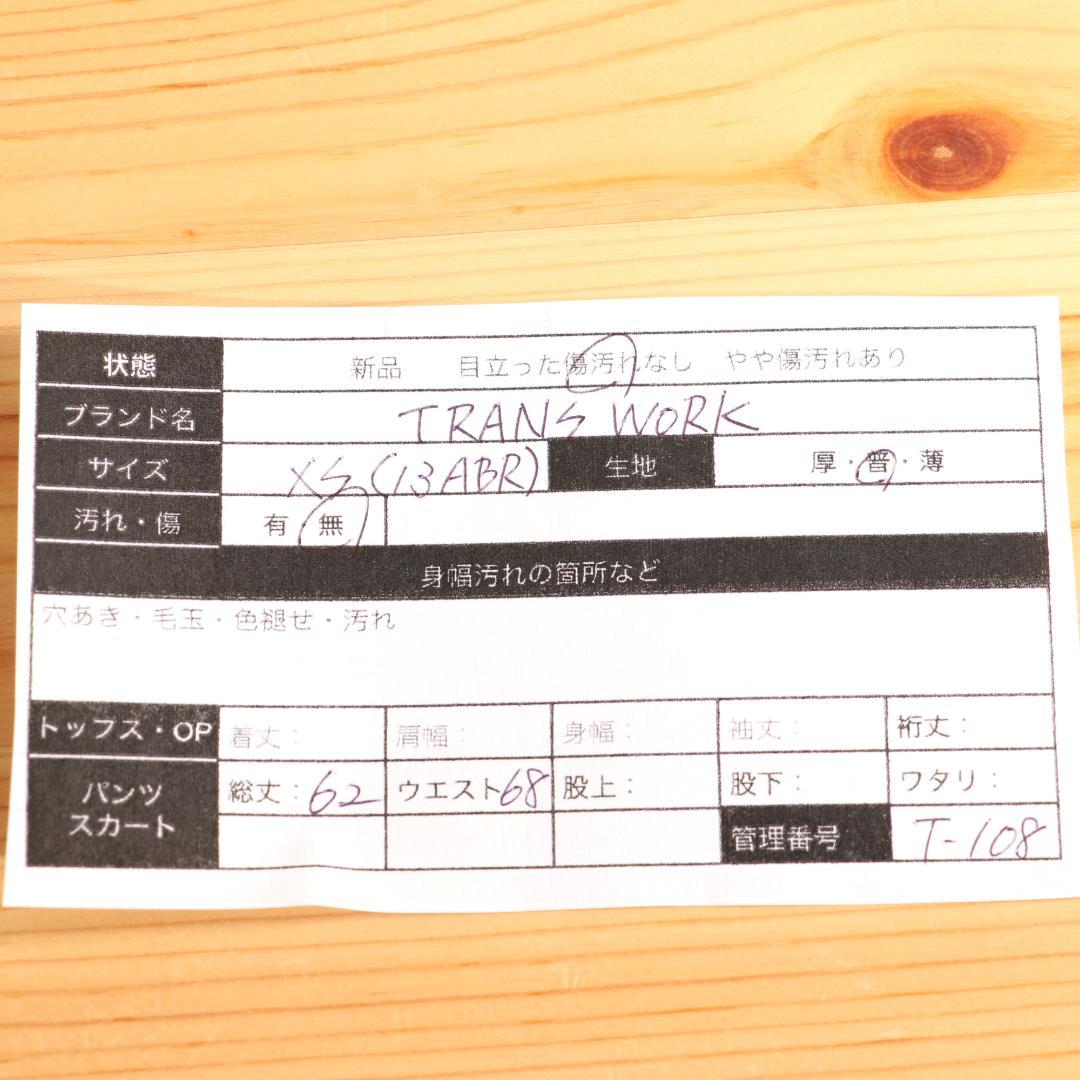 状態 新品 目立った傷汚れなし やや傷汚れあり
ブランド名 TRANS WORK
サイズ XS(13ABR) 生地 厚・普・薄
汚れ・傷 有 無
身幅汚れの箇所など
穴あき・毛玉・色褪せ・汚れ
トップス・OP 着丈: 肩幅: 身幅: 袖丈: 裄丈:
パンツ 総丈:62 ウエスト68 股上: 股下: ワタリ:
スカート 管理番号 T-108